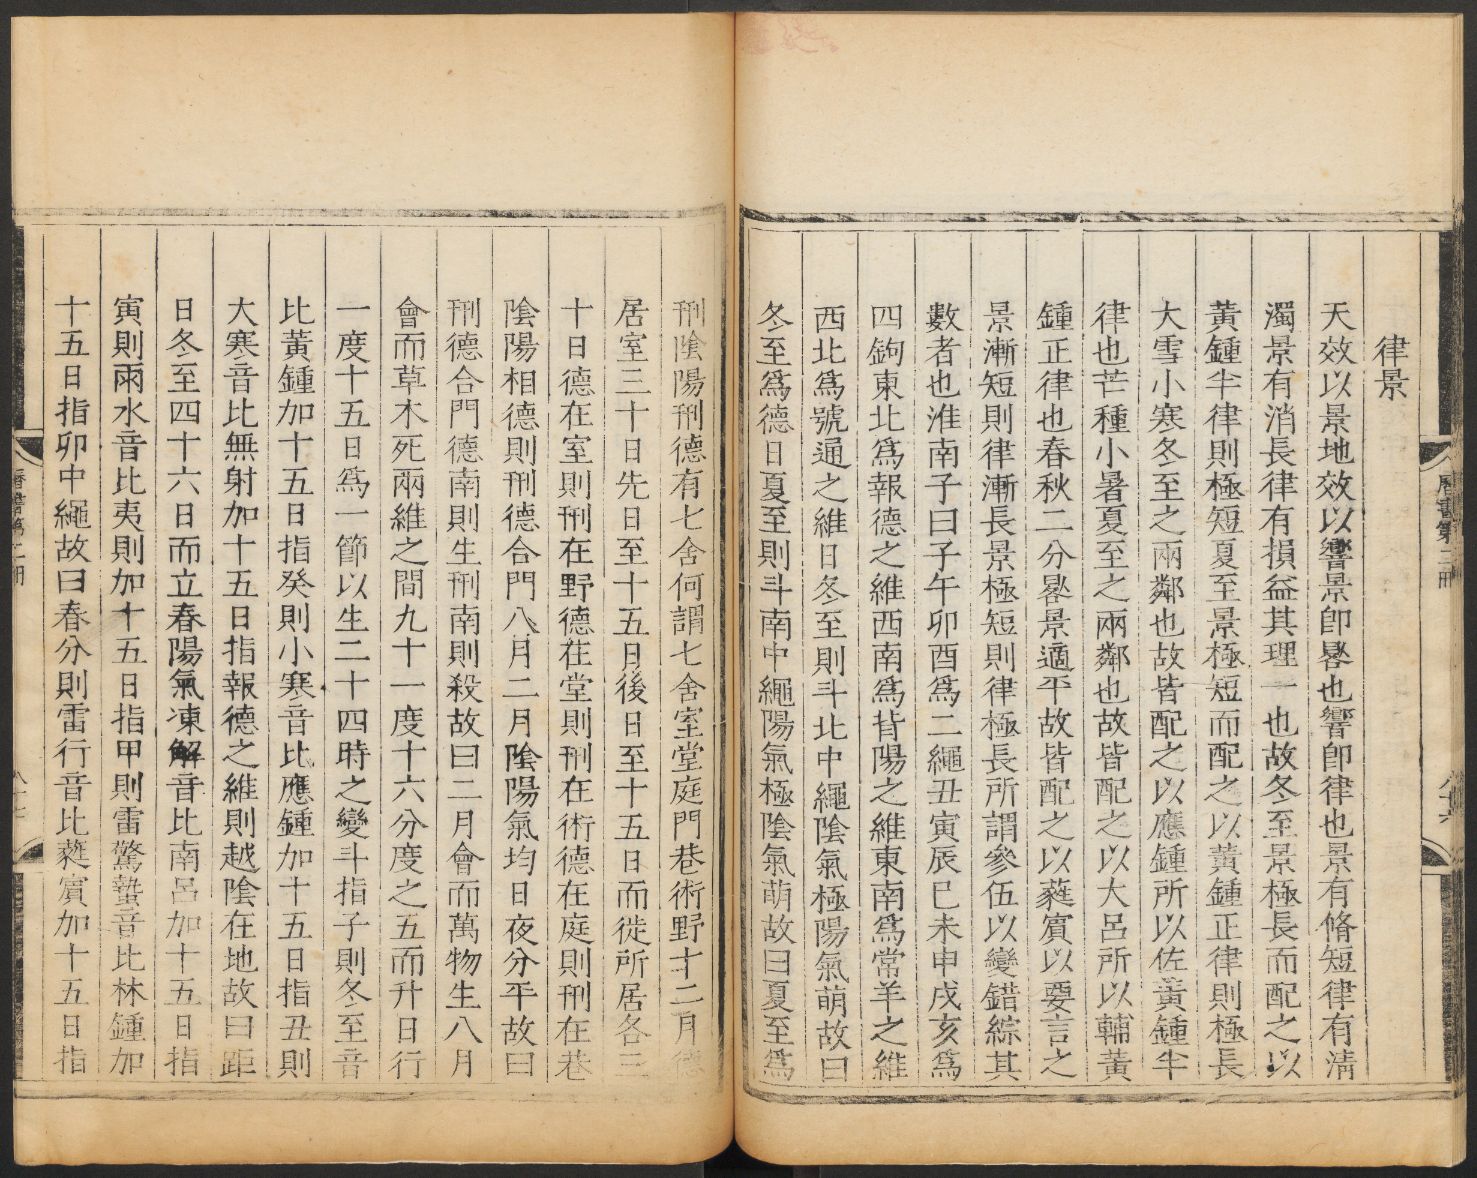 律景
天效以景地效以響景卽晷也響卽律也景有脩短律有淸
濁景有消長律有損益其理一也故冬至景極長而配之以
黃鍾半律則極短夏至景極短而配之以黃鍾正律則極長
大雪小寒冬至之兩鄰也故皆配之以應鍾所以佐黃鍾半
律也芒種小暑夏至之兩鄰也故皆配之以大呂所以輔黃
鍾正律也春秋二分晷景適平故皆配之以蕤賓以要言之
景漸短則律漸長景極短則律極長所謂參伍以變錯綜其
數者也淮南子曰子午卯酉爲二繩丑寅辰巳未申戌亥爲
四鉤東北爲報德之維西南爲背陽之維東南爲常羊之維
西北爲號通之維日冬至則斗北中繩陰氣極陽氣萌故曰
冬至爲德日夏至則斗南中繩陽氣極陰氣萌故曰夏至爲
刑陰陽刑德有七舍何謂七舍室堂庭門巷術野十二月德
居室三十日先日至十五日後日至十五日而徙所居各三
十日德在室則刑在野德在堂則刑在術德在庭則刑在巷
陰陽相德則刑德合門八月二月陰陽氣均日夜分平故曰
刑德合門德南則生刑南則殺故曰二月會而萬物生八月
會而草木死兩維之間九十一度十六分度之五而升日行
一度十五日爲一節以生二十四時之變斗指子則冬至音
比黃鍾加十五日指癸則小寒音比應鍾加十五日指丑則
大寒音比無射加十五日指報德之維則越陰在地故曰距
日冬至四十六日而立春陽氣凍解音比南呂加十五日指
寅則雨水音比夷則加十五日指甲則雷驚蟄音比林鍾加
十五日指卯中繩故曰春分則雷行音比蕤賓加十五日指
曆書第二冊
八十六
曆書第二冊
八十七